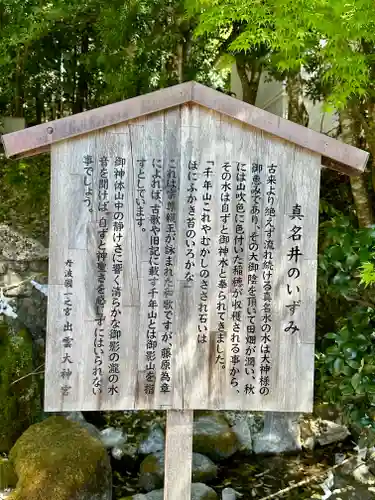 真名井のいずみ
古来より絶えず流れ続ける真名井の水は大神様の
御恵みであり、その大御蔭を頂いて田畑が潤い、秋
には山吹色に色付いた稲穂が収穫される事から、
その水は自ずと御神水と崇められてきました。
「千年山これやむかしのさされ石いは
ほにふかき苔のいろかな」
これは 親王が詠まれた和歌ですが、藤原為章
によれば、古歌や旧記に載す千年山とは御影山
としています。
御神体山中の静けさに響く清らかな御影の瀧の水
音を聞けば、自ずと神聖さを感じずにはいられない
事でしょう。
丹波國一之宮 出雲大神宮